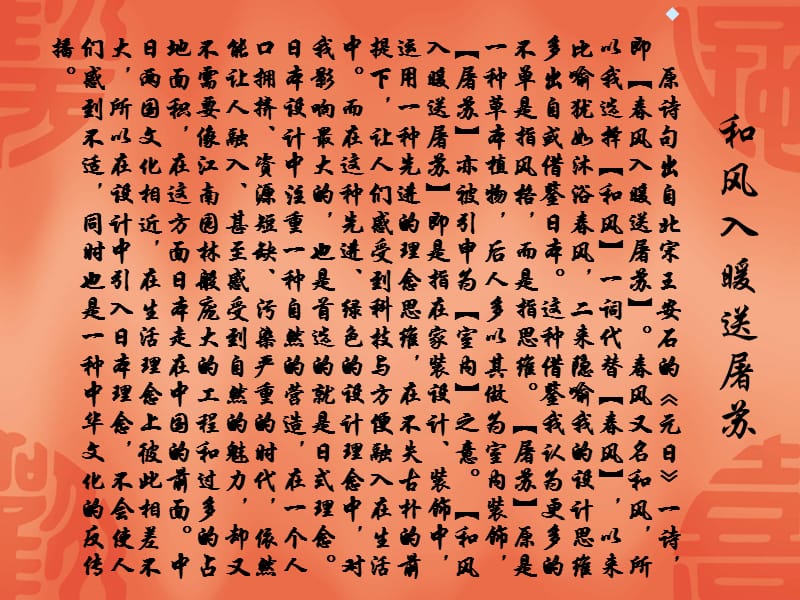 和风入暖送屠苏
原诗句出自北宋王安石的《元日》一诗，
即【春风入暖送屠苏】。春风又名和风，所
以我选择【和风】一词代替【春风】，以来
比喻犹如沐浴春风，二来隐喻我的设计思维
多出自或借鉴日本。这种借鉴我认为更多的
不单是指风格，而是指思维。【屠苏】原是
一种草本植物，后人多以其做为室内装饰，
【屠苏】亦被引申为【室内】之意。【和风
入暖送屠苏】即是指在家装设计、装饰中，
运用一种先进的理念思维，在不失古朴的前
提下，让人们感受到科技与方便融入在生活
中。而在这种先进、绿色的设计理念中，对
我影响最大的，也是首选的就是日式理念。
日本设计中注重一种自然的营造，在一个人
口拥挤、资源短缺、污染严重的时代，依然
能让人融入、甚至感受到自然的魅力，却又
不需要像江南园林般庞大的工程和过多的占
地面积，在这方面日本走在中国的前面。中
日两国文化相近，在生活理念上彼此相差不
大，所以在设计中引入日本理念，不会使人
们感到不适，同时也是一种中华文化的反传
播。